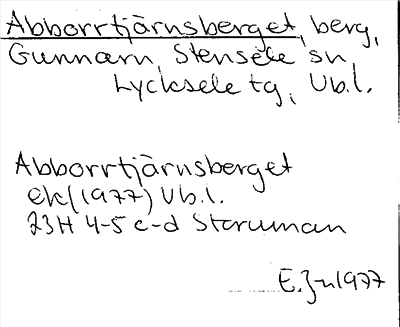 Abborrtjärnsberget, berg,
Gunnarn, Stensele sn,
Lycksele tg, Vb.l.
Abborrtjärnsberget
ek(1977) Vb.l.
23H 4-5 c-d Storuman
E.Jn 1977